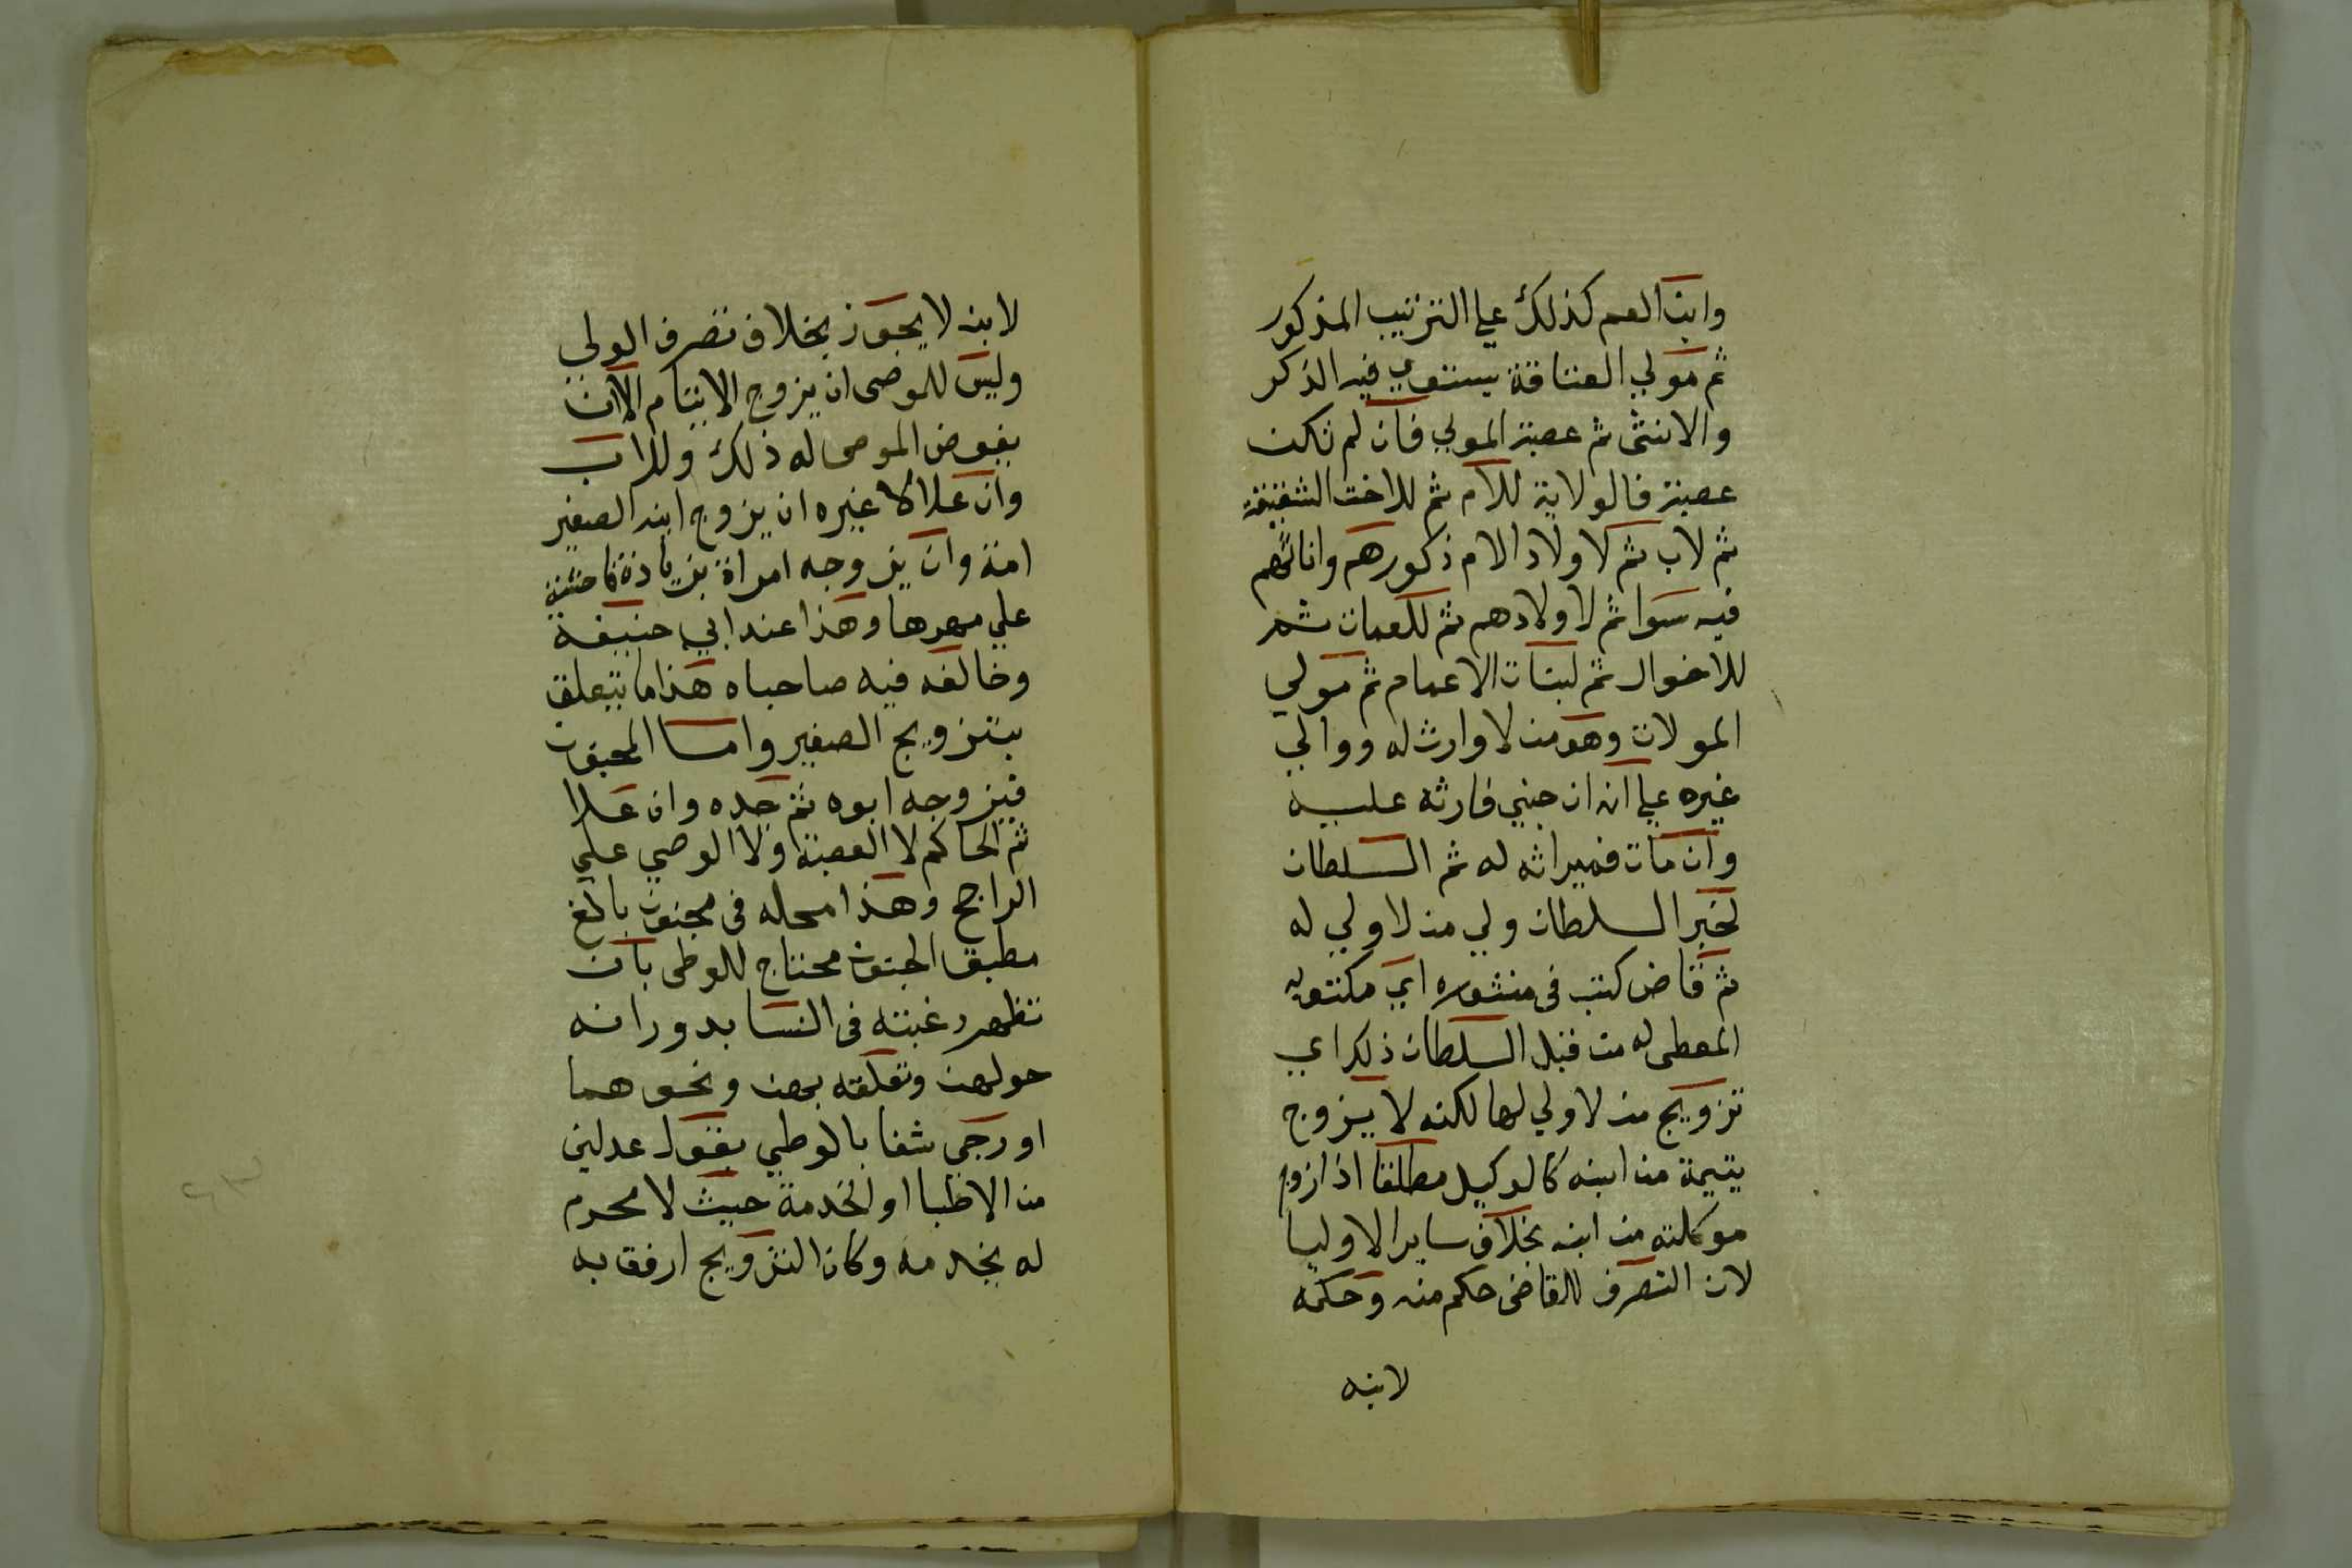 وابن العم كذلك علي الترتيب المذكور
ثم مولي العتاقة يستوي فيه الذكر
والانثى ثم عصبة المولي فان لم تكن
عصبة فالولاية للام ثم للاخت الشقيقة
ثم لاب ثم لاولاد الام ذكورهم واناثهم
فيه سوا ثم لاولادهم ثم للعمات ثم
للاخوال ثم لبنات الاعمام ثم مولي
المولات وهو من لا وارث له ووالي
غيره علي انه ان جني فارثه عليه
وان مات فميراثه له ثم السلطان
لخبر السلطان ولي من لا ولي له
ثم قاض كتب في منشوره اي مكتوبه
المعطى له من قبل السلطان ذلك اي
تزويج من لا ولي لها لكنه لا يزوج
يتيمة من ابنه كالوكيل مطلقا اذا زوج
موكلته من ابنه بخلاف ساير الاوليا
لان التصرف للقاضي حكم منه وحكمه
لابنه
لابنه لا يجوز بخلاف تصرف الولي
وليس للوصى ان يزوج الايتام الا ان
يفوض الموصى له ذلك وللاب
وان علا لا غيره ان يزوج ابنه الصغير
امة وان يزوجه امراة بزيادة فاحشة
علي مهرها وهذا عند ابي حنيفة
وخالفه فيه صاحباه هذا ما يتعلق
بتزويج الصغير واما المجنون
فيزوجه ابوه ثم جده وان علا
ثم الحاكم لا العصبة ولا الوصي علي
الراجح وهذا محله في مجنون بالغ
مطبق الجنون محتاج للوطى بان
تظهر رغبته في النسا بدورانه
حولهن وتعلقه بهن ونحوهما
او رجي شفا بالوطي بقول عدلين
من الاطبا او لخدمة حيث لا محرم
له يخدمه وكان التزويج ارفق به